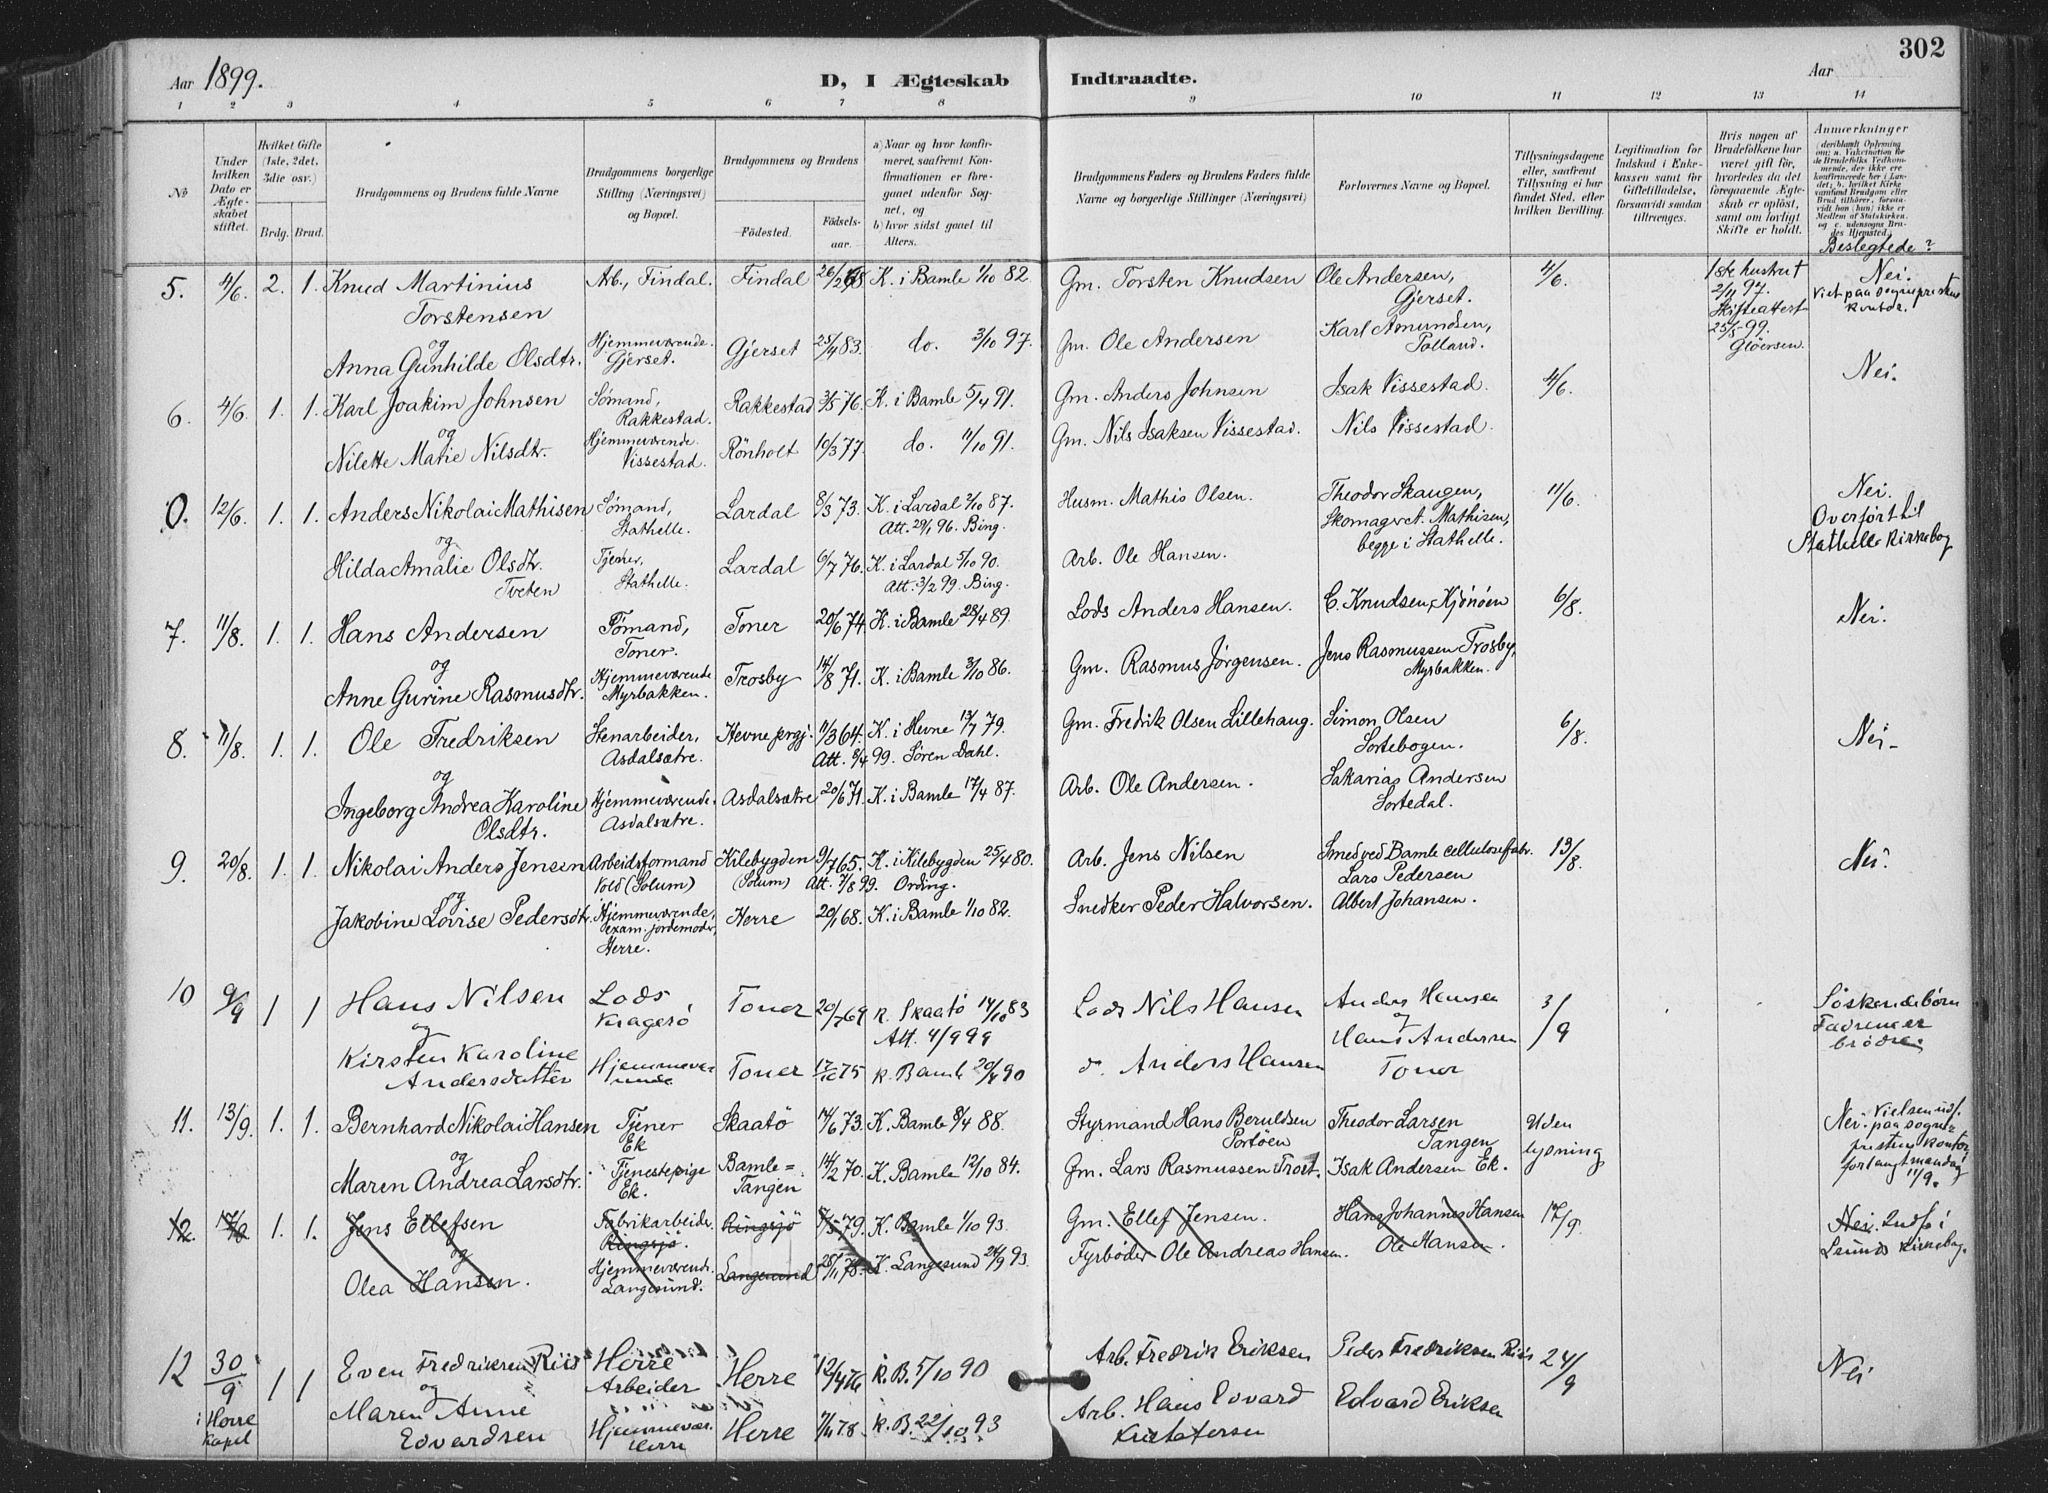 302
Aar 1899.
D, I Ægteskab Indtraadte.
Aar
1 2 3 4 5 6 7 8 9 10 11 12 13 14
No
Under hvilken Dato er Ægteskabet stiftet.
Hvilket Gifte (1ste, 2det, 3die osv.)
Brdg. Brud.
Brudgommens og Brudens fulde Navne
Brudgommens borgerlige Stilling (Næringsvei) og Bopæl.
Brudgommens og Brudens
Födested. Födselsaar.
a) Naar og hvor konfirmeret, saafremt Konfirmationen er foregaaet udenfor Sognet, og
b) hvor sidst gaaet til Alters.
Brudgommens Faders og Brudens Faders fulde Navne og borgerlige Stillinger (Næringsvei)
Forlovernes Navne og Bopæl.
Tillysningsdagene eller, saafremt Tillysning ei har fundet Sted, efter hvilken Bevilling.
Legitimation for Indskud i Enkekassen samt for Giftetilladelse, forsaavidt saadan tiltrænges.
Hvis nogen af Brudefolkene har været gift før, hvorledes da det foregaaende Ægteskab er oplöst, samt om lovligt Skifte er holdt.
Anmærkninger
(deriblandt Oplysning om: a. Vakcination for de Brudefolks Vedkommende, der ikke ere konfirmerede her i Landet; b. hvilket Kirkesamfund Brudgom eller Brud tilhörer, forsaavidt han (hun) ikke er Medlem af Statskirken, og c. udensogns Brudes Hjemsted.
Beslegtede?
5. 4/6. 2. 1. Knud Martinius Arb., Findal. Findal 26/2 68 K. i Bamle 1/10 82 Gm. Torsten Knudsen Ole Andersen, 4/6. 1ste hustru † Nei.
Torstensen Gjerset. 2/11 97. Viet paa sogneprestens
og Hjemmeværende. Karl Amundsen, Skifteattest kontor.
Anna Gunhilde Olsdtr. Gjerset. Gjerset 25/4 83. do. 3/10 97. Gm. Ole Andersen 25/5 99.
Gløersen.
6. 4/6. 1. 1. Karl Joakim Johnsen Sømand, Rakkestad 3/5 76. K. i Bamle 5/4 91. Gm. Anders Johnsen Isak Vissestad. 4/6. Nei.
og Rakkestad.
Nilette Marie Nilsdtr. Hjemmeværende. Rönholt 10/3 77. do. 11/10 91. Gm. Nils Isaksen Vissestad. Nils Vissestad.
Vissestad.
0. 12/6. 1. 1. Anders Nikolai Mathisen Sømand, Lardal 8/3 73. K. i Lardal 2/10 87. Husm. Mathis Olsen. Theodor Skaugen, 11/6. Nei.
og Stathelle. Att. 29/1 96. Bing. Skomager Mathisen, Overført til
Hilda Amalie Olsdtr. Tjener, Lardal 6/7 76. K. i Lardal 5/10 90. Arb. Ole Hansen. begge i Stathelle. Stathelle Kirkebog
Tveten Stathelle. Att. 3/2 99. Bing.
7. 11/8. 1. 1. Hans Andersen Sømand, Toner 20/6 74. K. i Bamle 28/4 89. Lods Anders Hansen. C. Knudsen, Kjönöen 6/8. Nei.
og Toner.
Anne Gurine Rasmusdtr. Hjemmeværende Trosby 14/8 71. K. i Bamle 3/10 86. Gm. Rasmus Jørgensen. Jens Rasmussen Trosby,
Myrbakken. Myrbakken.
8. 11/8. 1. 1. Ole Fredriksen Stenarbeider, Hevne prgj. 11/3 64. K. i Hevne 13/7 79. Gm. Fredrik Olsen Lillehaug. Simon Olsen 6/8. Nei.
og Asdalsætre. Att. 8/4 99. Sören Dahl. Sortebogen.
Ingeborg Andrea Karoline Hjemmeværende. Asdalsætre 20/6 71. K. i Bamle 17/4 87. Arb. Ole Andersen. Sakarias Andersen
Olsdtr. Asdalsætre. Sortedal.
9. 20/8. 1. 1. Nikolai Anders Jensen Arbeidsformand Kilebygden 9/7 65. K. i Kilebygden 25/4 80. Arb. Jens Nilsen Smed ved Bamle cellulosefabr. 13/8. Nei.
og Vold (Solum) (Solum) Att. 7/8 99. Ording. Lars Pedersen
Jakobine Lovise Pedersdtr. Hjemmeværende, Herre 20/1 68. K. i Bamle 1/10 82. Snedker Peder Halvorsen. Albert Johansen.
exam. jordemoder,
Herre.
10 9/9 1 1 Hans Nilsen Lods Toner 20/7 69 K. Skaatö 14/10 83 Lods Nils Hansen Anders Hansen 3/9 Söskendebörn
og Kragerö Att. 4/9 99 og Fædrene er
Kirsten Karoline Hjemmevæ- Toner 17/10 75 K. Bamle 20/4 90 d. Anders Hansen Hans Andersen brødre.
Andersdatter rende Toner
11. 13/9. 1. 1. Bernhard Nikolai Hansen Tjener Skaatö 14/6 73. K. Bamle 8/4 88. Styrmand Hans Beruldsen Theodor Larsen Uden Nei. Vielsen udf.
og Ek Portöen Tangen lysning paa sogne-
Maren Andrea Larsdtr. Tjenestepige Bamle= 14/2 70. K. Bamle 12/10 84. Gm. Lars Rasmussen Isak Andersen Ek. prestens kontor
Ek. Tangen 11/9.
12. 17/9 1. 1. Jens Ellefsen Fabrikarbeider. Ringsjö 9/5 79. K. Bamle 1/10 93. Gm. Ellef Jensen. Hans Johannes Hansen 17/9. Nei. Indf. i
og Ringsjö. Ole Hansen. Lsunds Kirkebog.
Olea Hansen. Hjemmeværende. Langesund 25/11 78. K. Langesund 24/9 93. Fyrbøder Ole Andreas Hansen.
Langesund.
12 30/9 1 1 Even Fredriksen Riis Herre Herre 12/4 76 K. B. 5/10 90 Arb. Fredrik Eriksen Peder Fredriksen Riis 24/9 Nei
i Herre og Arbeider
Kapel Maren Anne Hjemmevær. Herre 7/11 78 K. B. 22/10 93 Arb. Hans Edvard Edvard Eriksen
Edvardsen Herre